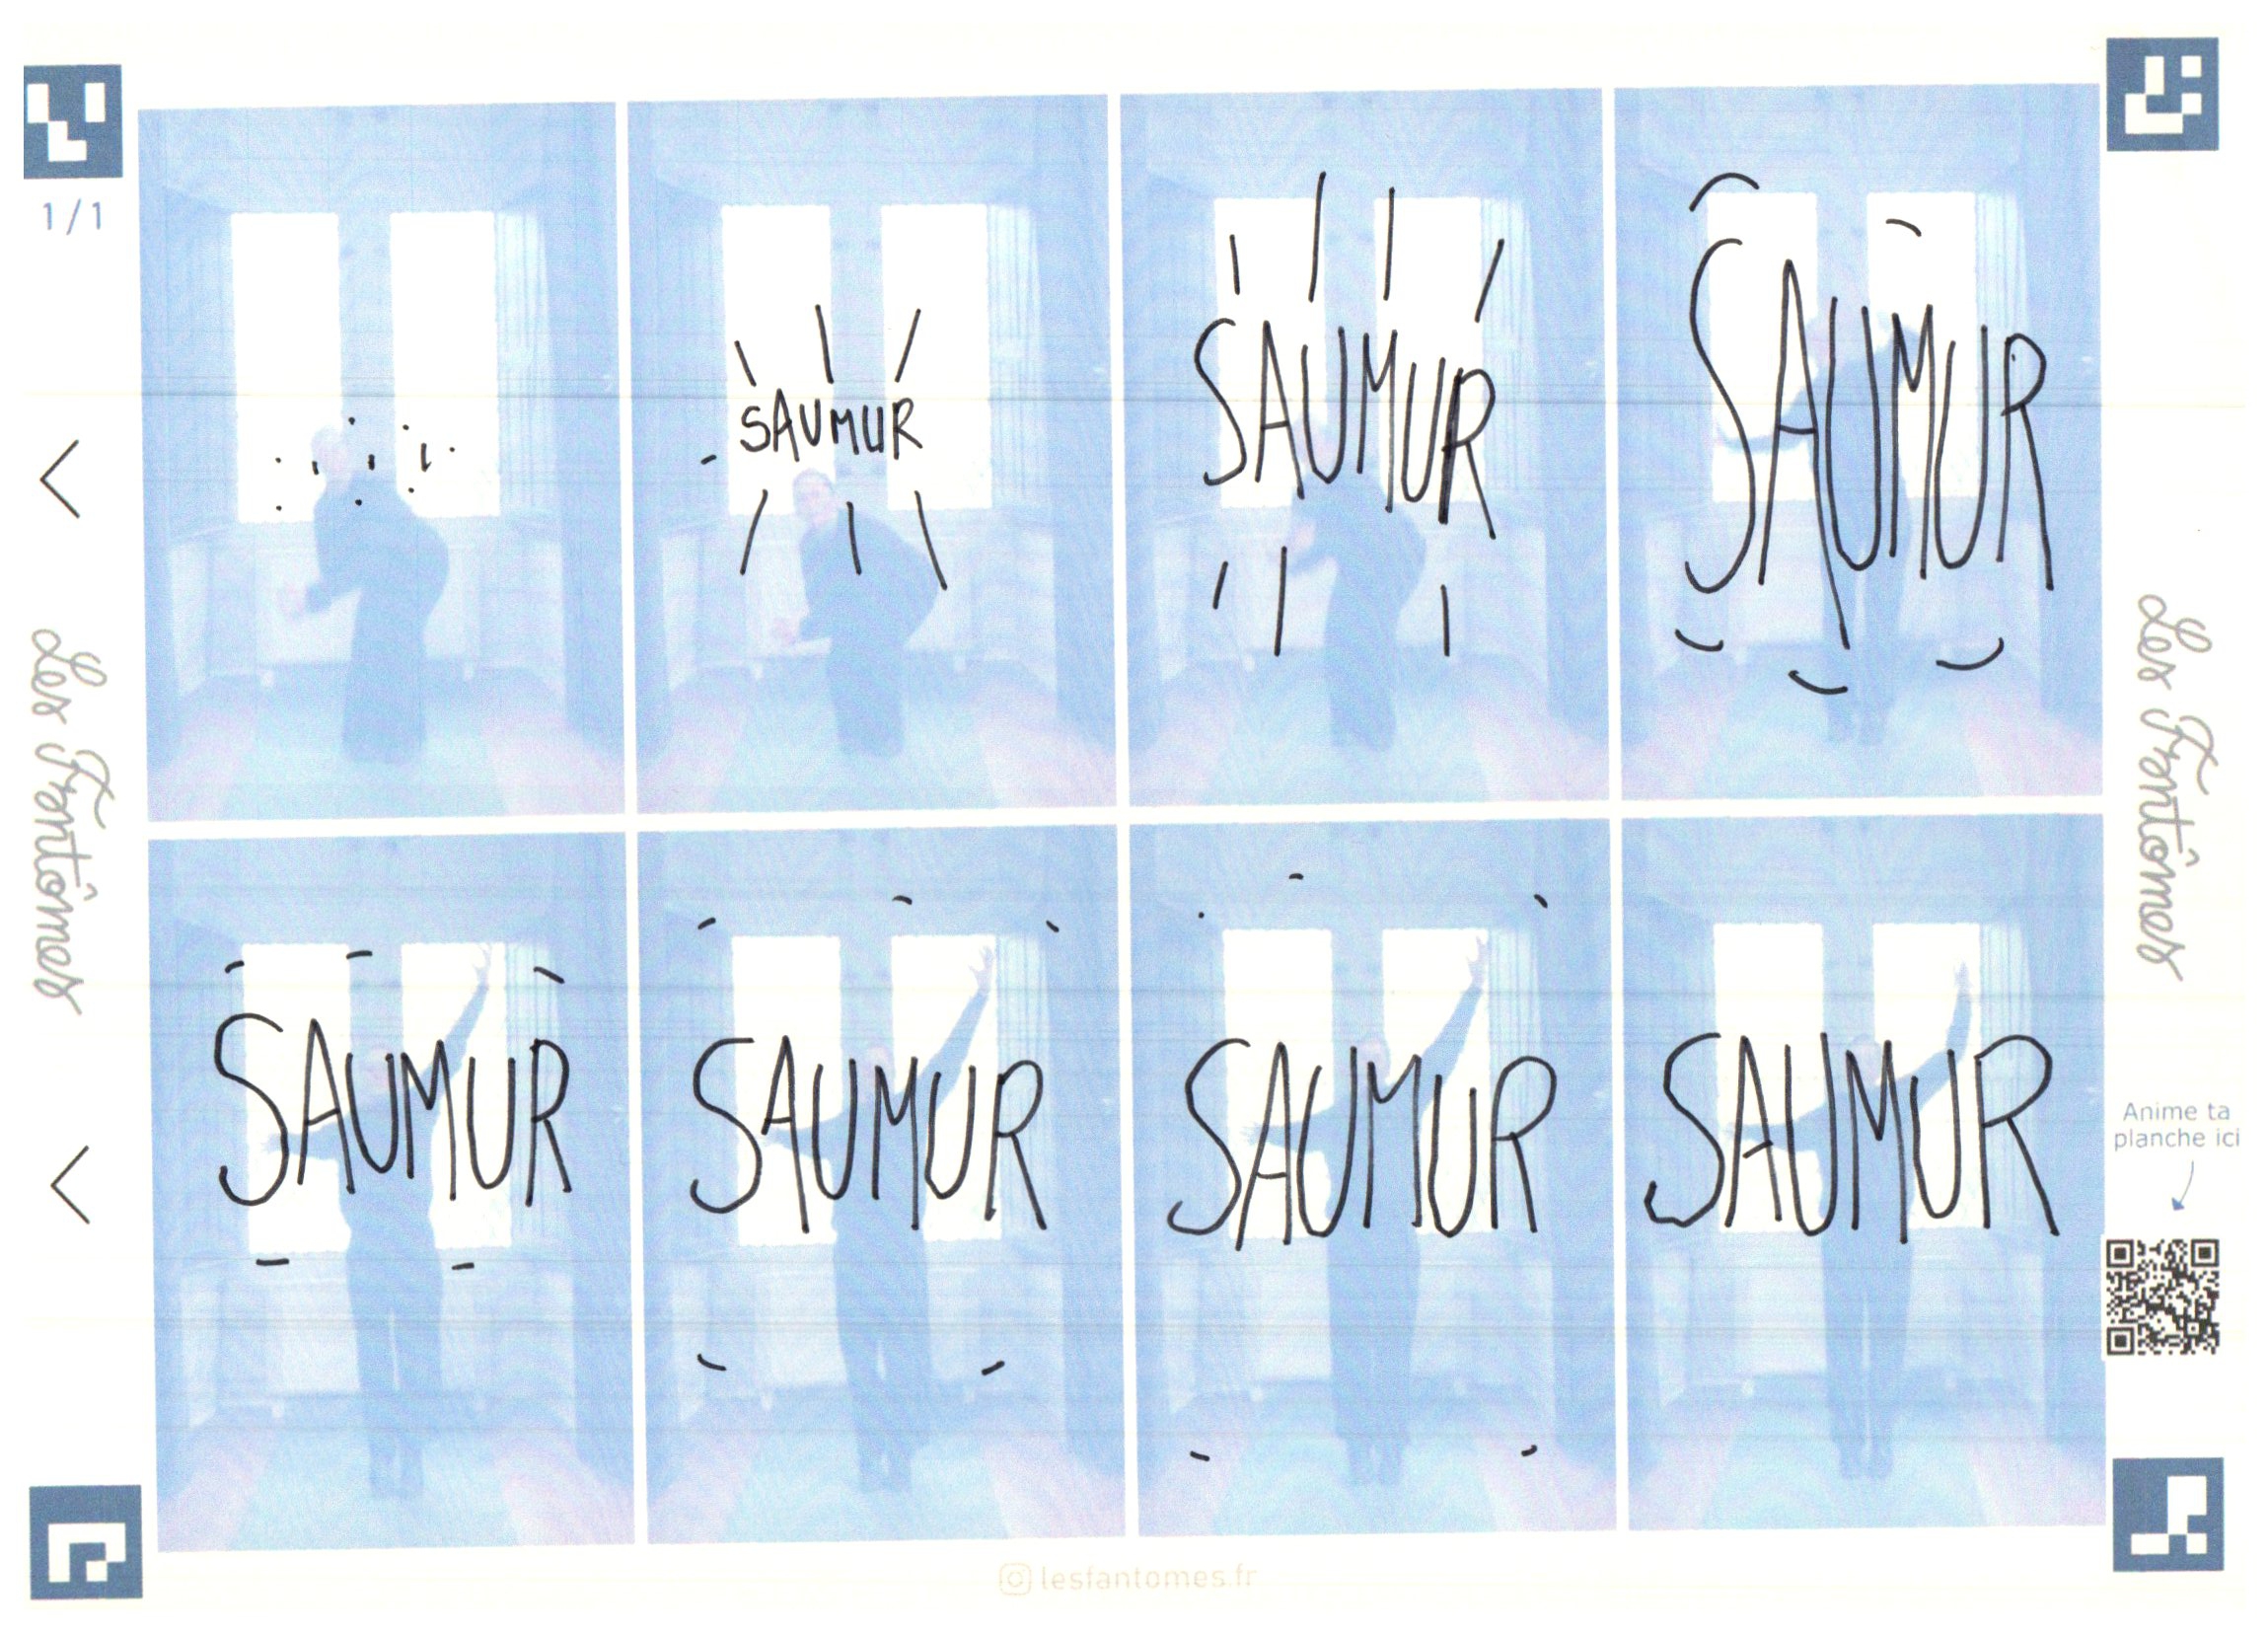 1/1
SAUMUR
SAUMUR
SAUMUR
Les Fantômes
Les Fantômes
SAUMUR
SAUMUR
SAUMUR
SAUMUR
Anime ta
planche ici
lesfantomes.fr